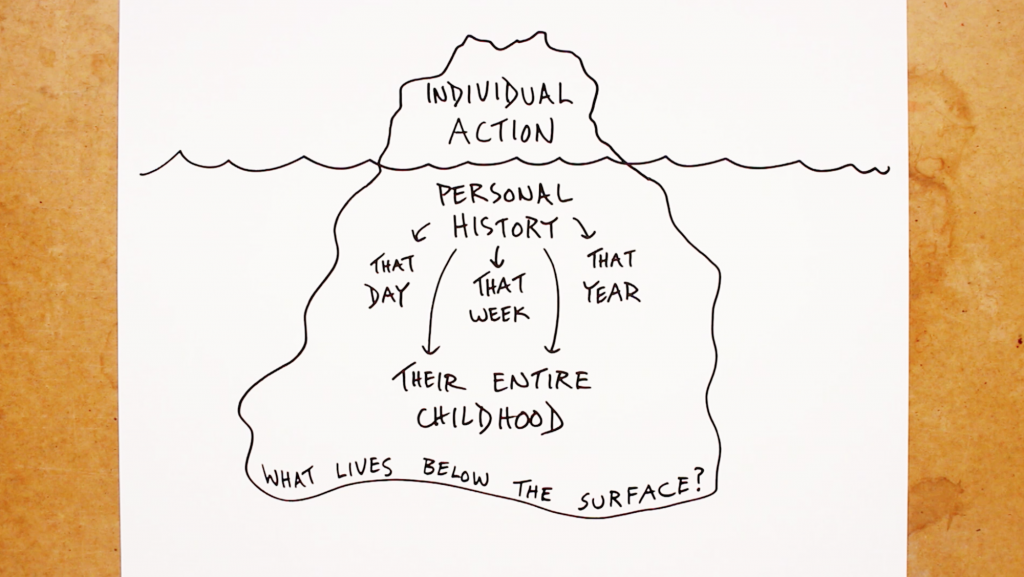 INDIVIDUAL
ACTION
PERSONAL
HISTORY
THAT
DAY
THAT
WEEK
THAT
YEAR
THEIR ENTIRE
CHILDHOOD
WHAT LIVES BELOW THE SURFACE?